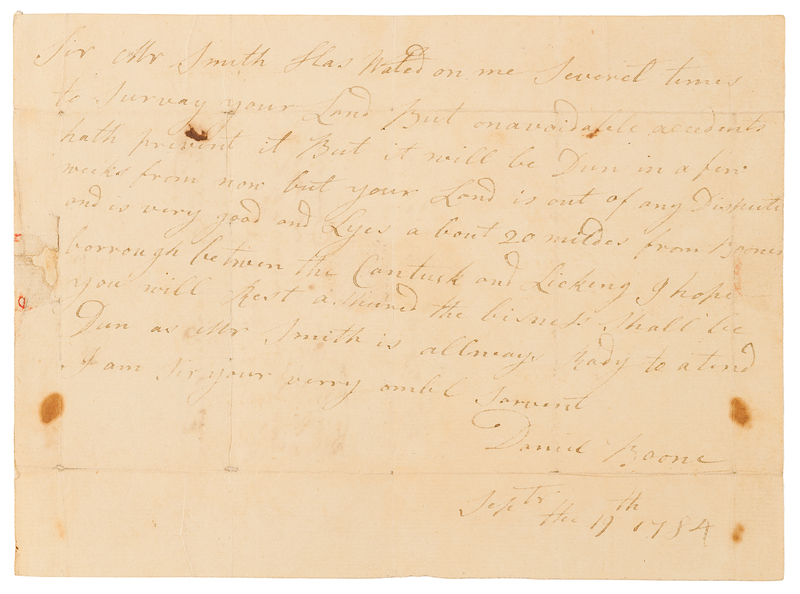 Sir Mr Smith Has Wated on me Severel times
to Survay your Land But onavoidable acedents
hath prevent it But it will be Dun in a few
weeks from now but your Land is out of any Dispute
and is very good and Lyes a bout 20 mildes from Boones
borrough betwen the Cantuck and Licking I hope
you will Rest ashured the bisness Shall be
Dun as Mr Smith is allways Rady to atend
I am Sir your verry ombel Sarvent
Daniel Boone
Septr
the 19th 1784